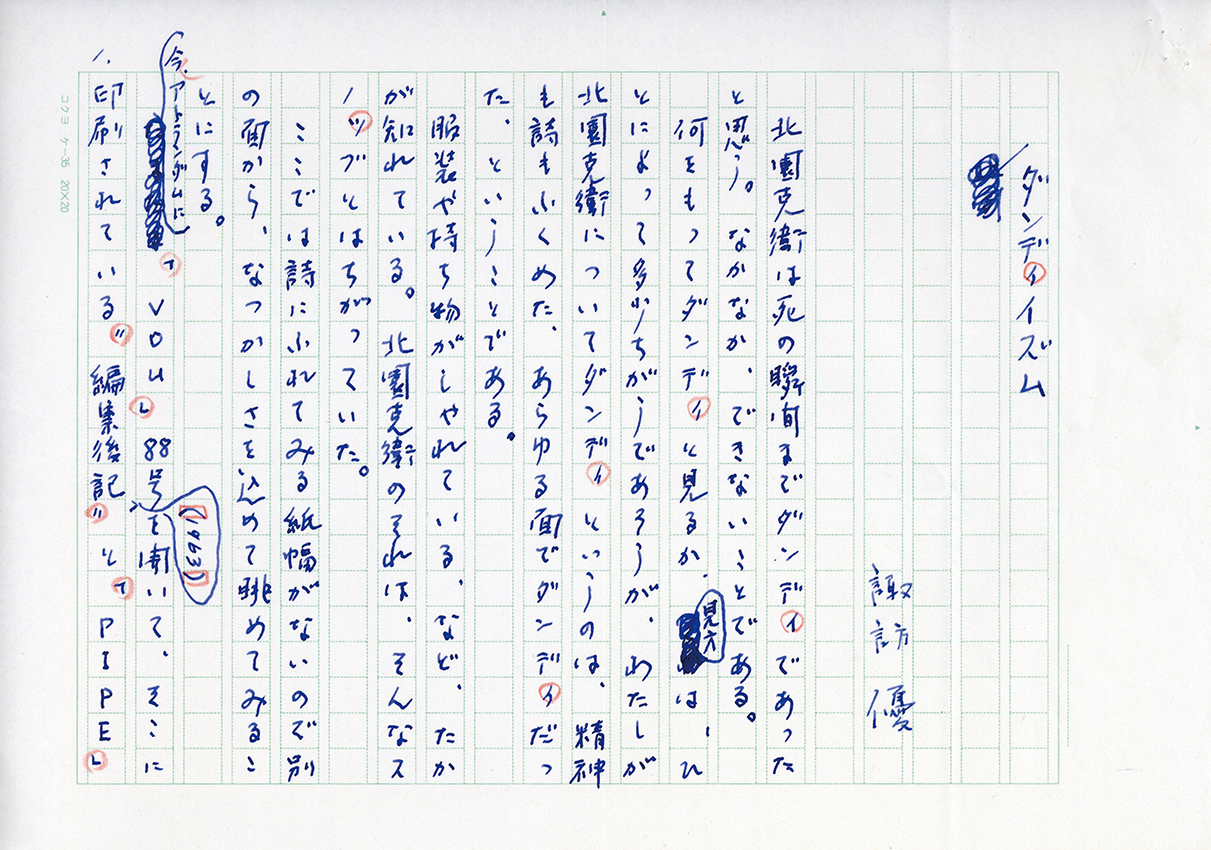 ダンディイズム
諏訪優
北園克衛は死の瞬間までダンディであった
と思う。なかなか、できないことである。
何をもってダンディと見るか、見方は、ひ
とによって多少ちがうであろうが、わたしが
北園克衛についてダンディというのは、精神
も詩もふくめた、あらゆる面でダンディだっ
た、ということである。
服装や持ち物がしゃれている、など、たか
が知れている。北園克衛のそれは、そんなス
ノッブとはちがっていた。
ここでは詩にふれてみる紙幅がないので別
の面から、なつかしさを込めて眺めてみるこ
とにする。
今、アトランダムに「VOU」88号(1963)を開いて、そこに
印刷されている〝編集後記〟と「PIPE」
コクヨ ケー35 20×20